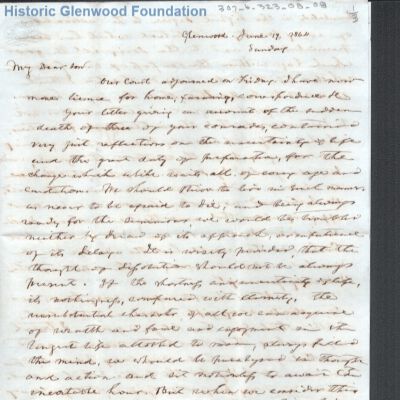 Historic Glenwood Foundation
307-6-323-08-08
1/3
Glenwood June 19, 1864
Sunday
My Dear son.
Our Court adjourned on Friday. I have now
more time for home, farming, correspondence &c
Your letter giving an account of the sudden
death of three of your comrades, contains
very just reflections on the uncertainty of life
and the great duty of preparation, for the
change which awaits all of every age and
condition. We should strive to live in such manner
as never to be afraid to die; and being always
ready for the summons we would be troubled
neither by dread of its approach, or impatience
of its delay. It is wisely provided, that the
thought of dissolution should not be always
present. If the shortness and uncertainty of life,
its nothingness, compared with eternity, the
unsubstantial character of all we can acquire
of wealth and fame and enjoyment in the
longest life allotted to man, always filled
the mind, we should be paralyzed in thought
and action and sit to await the
inevitable hour. But when we consider this